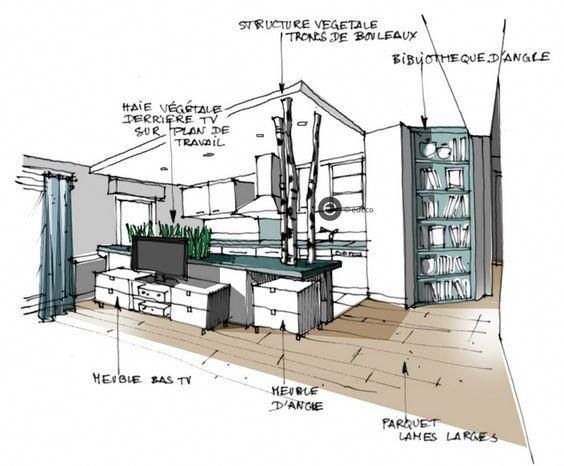 STRUCTURE VEGETALE
TRONCS DE BOULEAUX
BIBLIOTHEQUE D'ANGLE
HAIE VÉGÉTALE
DERRIERE TV
SUR PLAN DE
TRAVAIL
© edeco
MEUBLE BAS TV
MEUBLE
D'ANGLE
PARQUET
LAMES LARGES